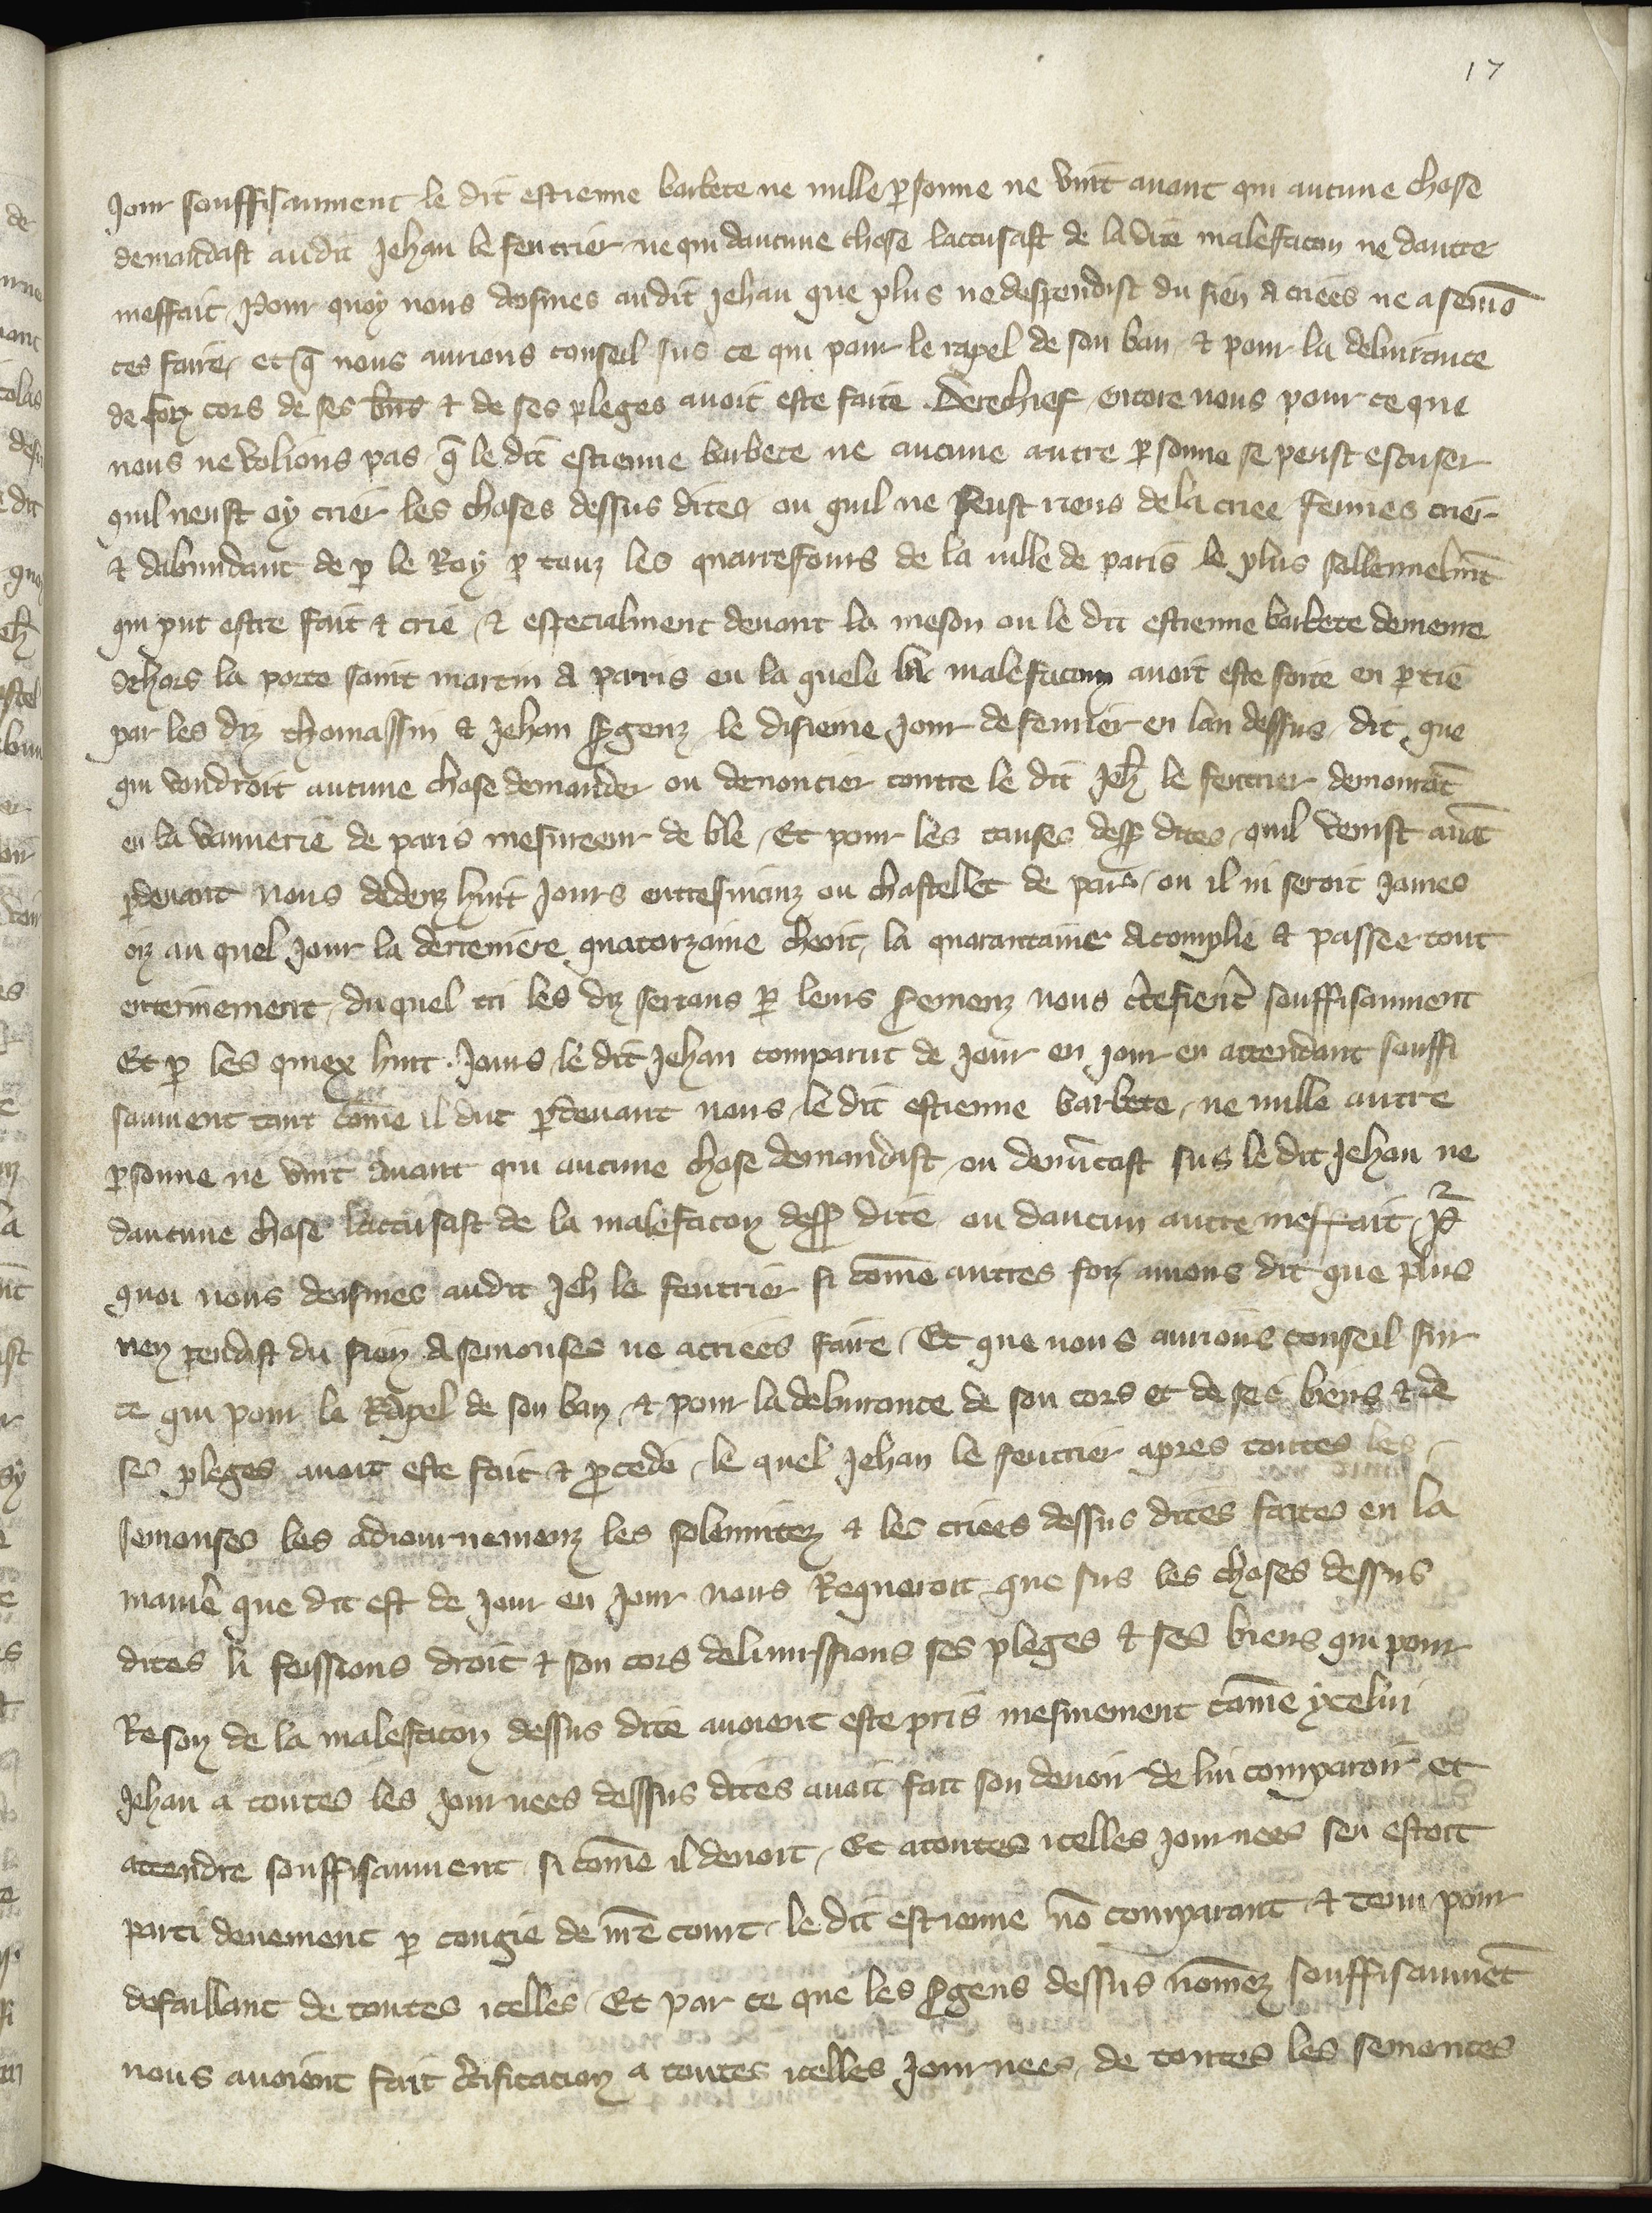 17
Jour souffisaument le dit estienne barbete ne nulle p̲sonne ne vint auant qui aucune chose
demandast audit Jehan le feutrier ne qui daucune chose laccusast de la dite maleffacon ne dautre
meffait Pour quoy nous deismes audit Jehan que plus ne despendist du sien a criees ne a semō
ces faire, et q̄ nous aurions conseil sus ce qui pour le rapel de son ban & pour la deliurance
de son cors de ses bn̄s & de ses pleges auoit este faite. Derechief encore nous pour ce que
nous ne volions pas q̄ le dit estienne barbete ne aucune autre p̲sonne se peust escuser
quil neust oy crier les choses dessus dites ou quil ne seust riens de la criee feimes crier
& dabundant de p̲ le Roy p̲ touz les quarrefours de la uille de paris le plus sollennelmēt
qui put estre fait & crie & especialment deuant la meson ou le dit estienne barbete demeure
dehors la porte saint martin a paris en la quele la malefacon auoit este faite en p̲tie
par les diz thomassin & Jehan s̲genz le disieme jour de feurier en lan dessus dit que
qui voudroit aucune chose demander ou denoncier contre le dit Jeh̄ le feutrier demourāt
en la vannerie de paris mesureeur de ble, Et pour les causes dess̄ dites quil venist auāt
p̲deuant nous dedenz huit jours entresuianz ou chastellet de paris ou il ni seroit james
oiz au quel jour la derreniere quatorzaine cheoit, la quarantaine acomplie & passee tout
enterinement, du quel cri les diz serians p̲ leurs s̲emenz nous c̲tefient̄ souffisaument
Et p̲ les quiex huit Jours le dit Jehan comparut de jour en jour en attendant souffi
saument tant cōme il dut p̲deuant nous, le dit estienne barbete, ne nulle autre
p̲sonne ne vint auant qui aucune chose demandast ou denūcast sus le dit Jehan ne
daucune chose laccusast de la malefacon dess̄ dite ou daucun autre meffait, po2
quoi nous deismes audit Jeh le feutrier si cōme autres foiz auions dit que plus
nen pendist du sien a semonses ne a criees faire, Et que nous aurions conseil sur
ce qui pour le Rapel de son ban & pour la deliurance de son cors et de ses biens & de
ses pleges auoit este fait & p̲cede, le quel Jehan le feutrier apres toutes les
semonses les adiournemenz les solennitez & les criees dessus dites faites en la
maniē que dit est de jour en jour nous Requeroit que sus les choses dessus
dites li feissions droit & son cors deliurissions ses pleges & ses biens qui pour
Reson de la maleffacon dessus dite auoient este pris mesmement cōme ycelui
Jehan a toutes les journees dessus dites auoit fait son deuoir de lui comparoir et
attendre souffisaument si cōme il deuoit, Et a toutes icelles journees sen estoit
parti deuement p̲ congie de nr̄e court le dit estienne nō comparant & tenu pour
defaillant de toutes icelles, Et par ce que les s̲gens dessus nōmez souffisaumēt
nous auoient fait c̲tificacion a toutes icelles journees de toutes les semonces